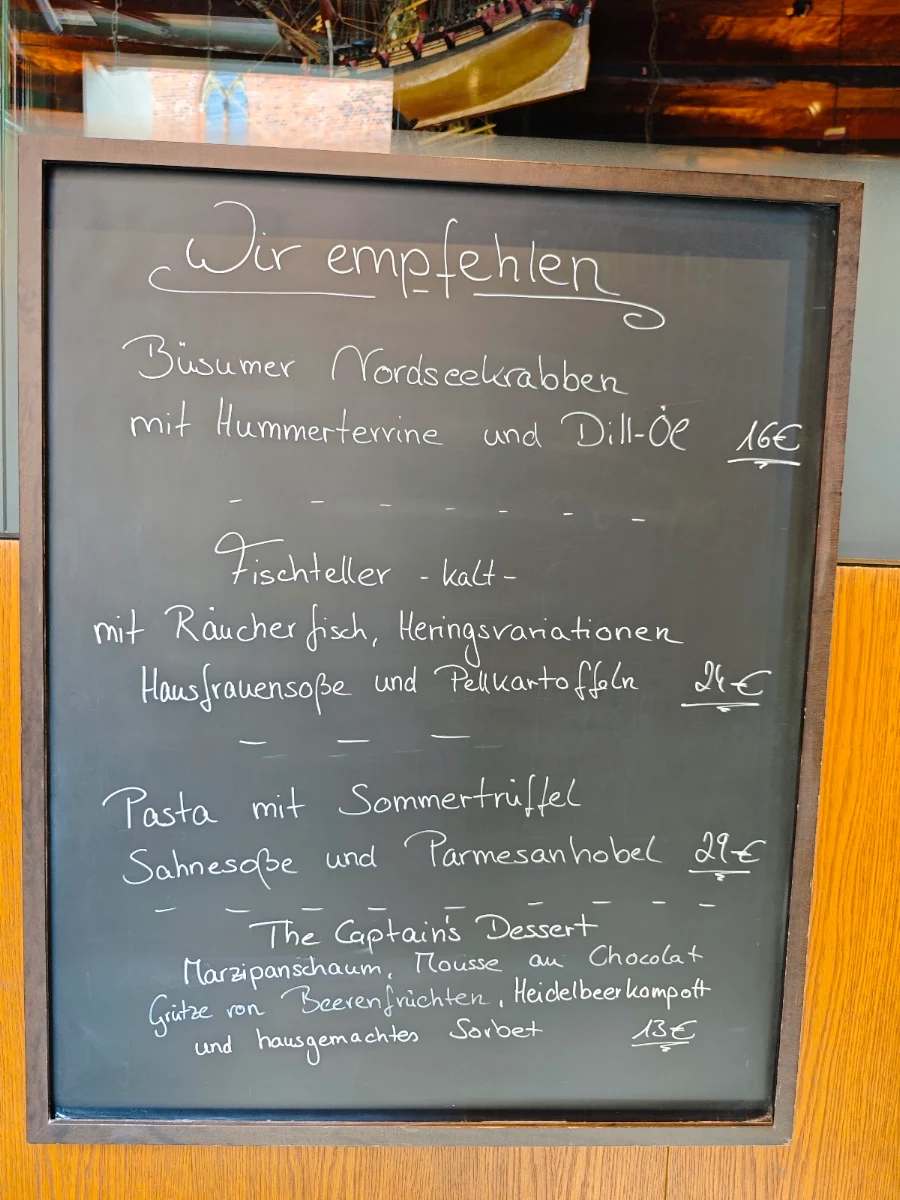 Wir empfehlen
Büsumer Nordseekrabben
mit Hummerterrine und Dill-Öl 16€
- - - - - - -
Fischteller - kalt -
mit Räucherfisch, Heringsvariationen
Hausfrauensoße und Pellkartoffeln 24€
- - -
Pasta mit Sommertrüffel
Sahnesoße und Parmesanhobel 29€
- - - - - - - - -
The Captain's Dessert
Marzipanschaum, Mousse au Chocolat
Grütze von Beerenfrüchten, Heidelbeerkompott
und hausgemachtes Sorbet 13€